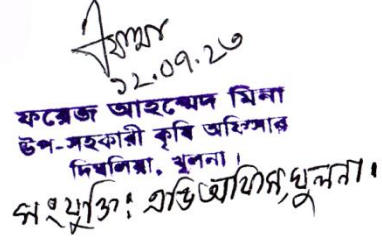 ১২.০৭.২৩
ফরেজ আহম্মেদ মিনা
উপ-সহকারী কৃষি অফিসার
দিঘলিয়া, খুলনা।
সংযুক্তি: এডি অফিস, খুলনা।